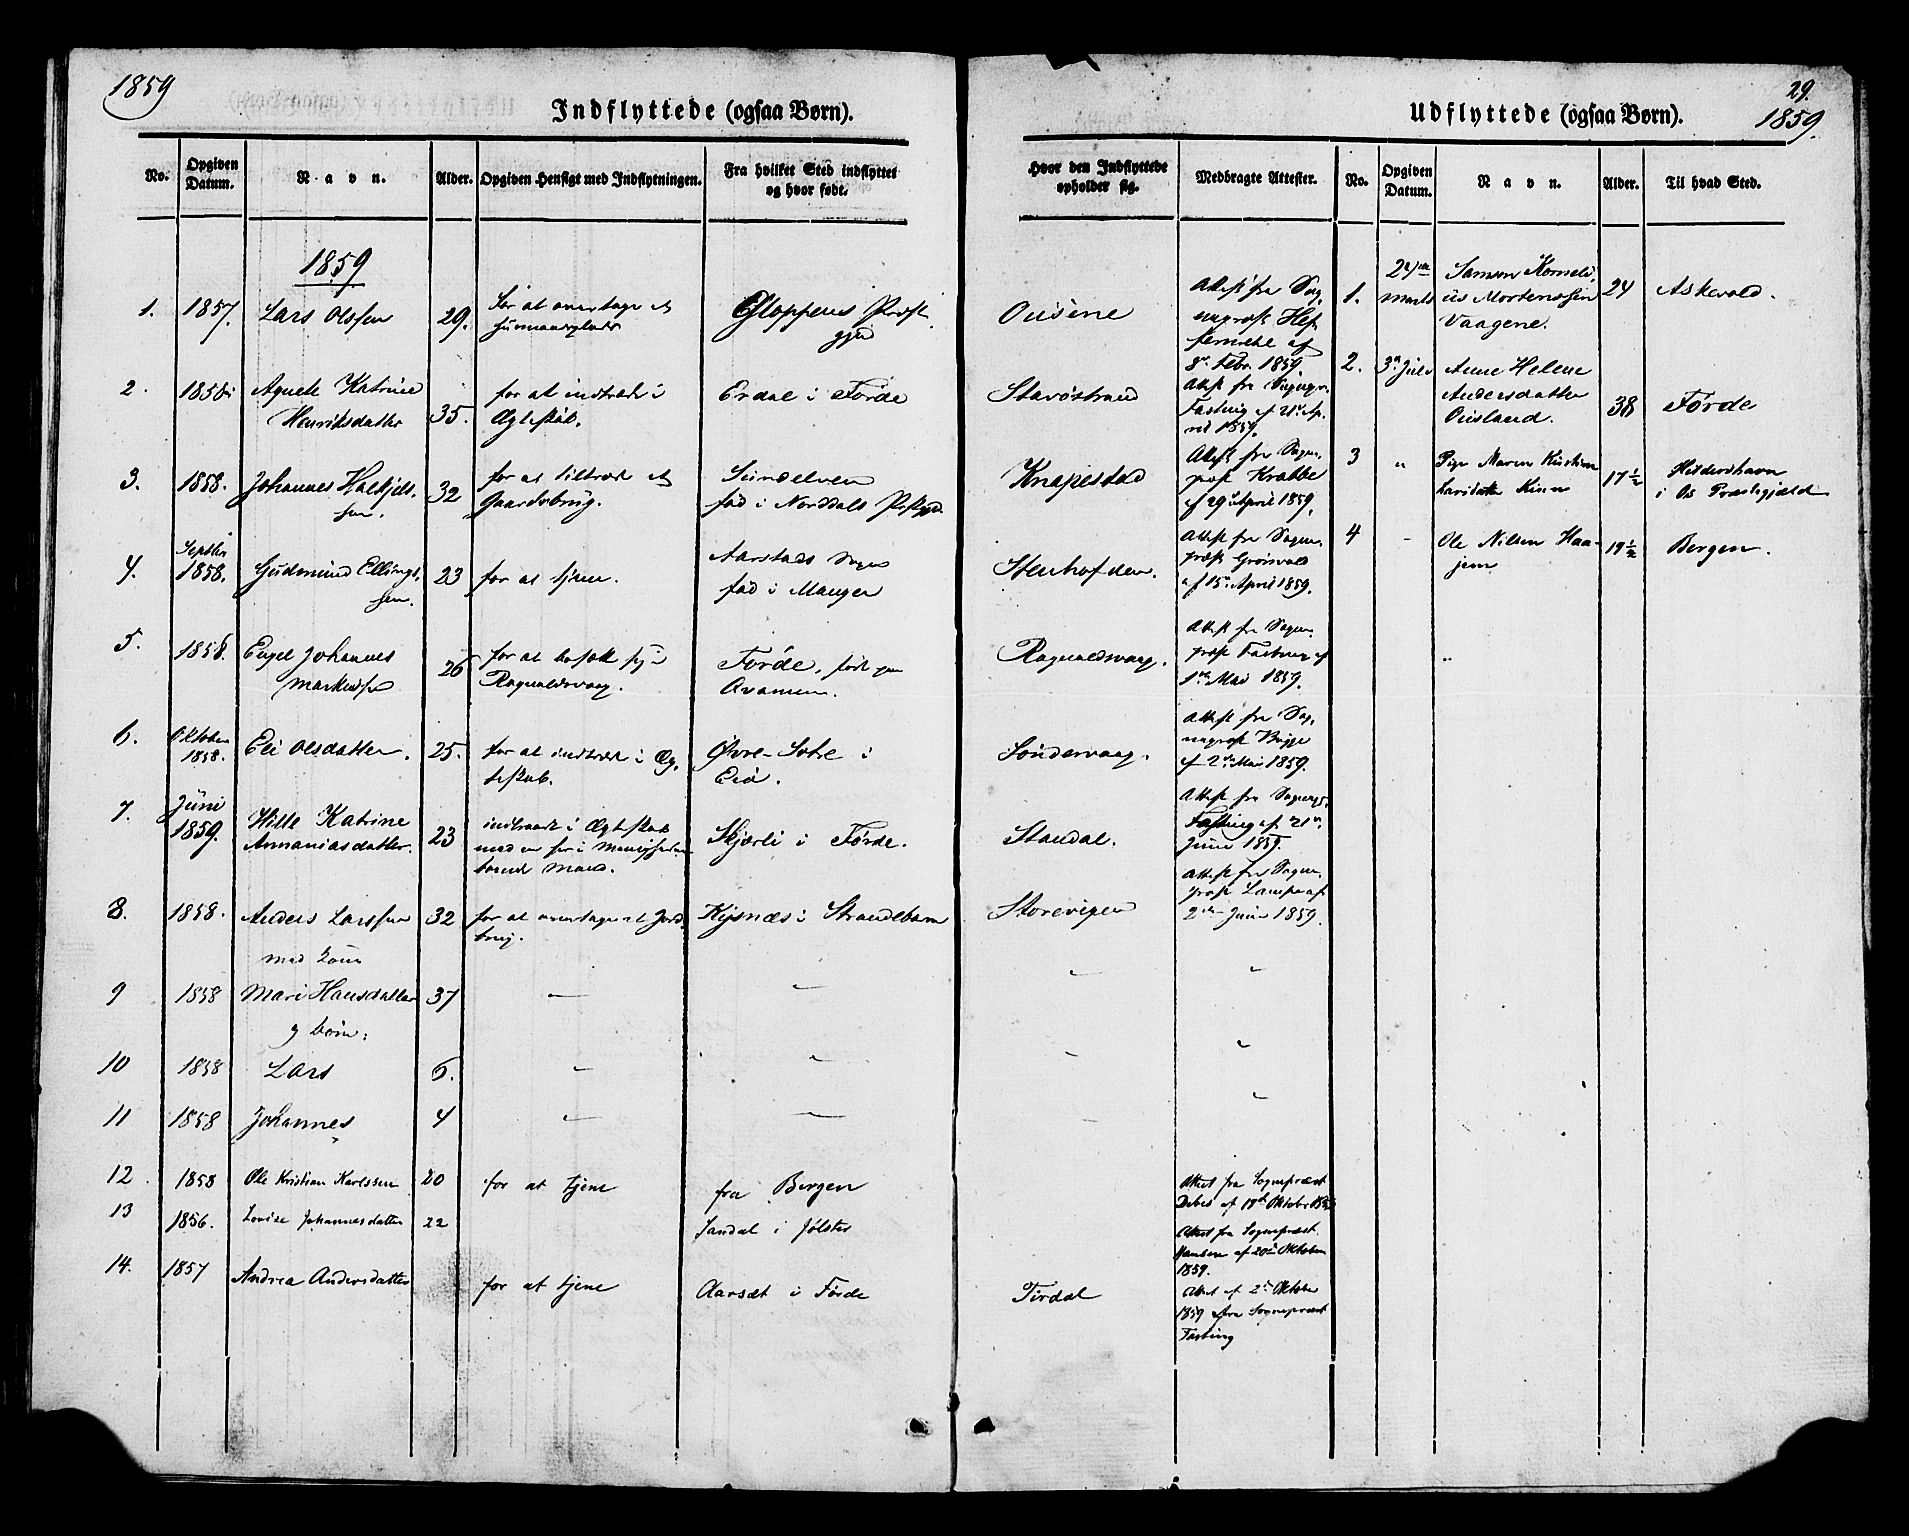 1859
Indflyttede (ogsaa Børn).
No.
Opgiven Datum.
Navn.
Alder.
Opgiven Hensigt med Indflytningen.
Fra hvilket Sted indflyttet og hvor født.
1859
1. 1857. Lars Olssen 29. for at overtage et
Gloppens Præst
gjed
2. 1858. Agnete Katrine
Henriksdatter 35. for at indtræde i
Ægteskab.
Erdal i Førde
3. 1858. Johannes
sen. 32 for at tiltræde et
Gaardsbrug.
Sundelven
fød i Norddals
4. Septbr
1858. Gudmund Ellings
sen. 23 for at tjene.
Aarstads Sogn
fød i Manger
5. 1858. Engel Johannes
Markussen 26 for at bosætte sig i
Ragnaldsvaag.
Førde, født paa
6. Oktober
1858. Eli Olsdatter. 25. for at indtræde i Æg-
teskab.
Øvre-Sotre i
Eid.
7. Juni
1859. Katrine
Annaniasdatter. 23 indtraadt i Ægteskab
med en her i Menigheden
boende Mand.
Skjærli i Førde.
8. 1858. Anders Larssen 32 for at overtage et Jord
brug.
i Strandebarm
med Kone
9 1858 Mari Hansdatter 37
og børn:
10 1858 Lars 6.
11 1858 Johannes 4
12. 1858 Ole Kristian Karlssen 20 for at tjene fra Bergen
13 1856. Lovise Johannesdatter 22 Sandal i Jølster
14. 1857 Andrea Andersdatter for at tjene Aarsæt i Førde
29.
Udflyttede (ogsaa Børn).
1859.
Hvor den Indflyttede opholder sig.
Medbragte Attester.
No.
Opgiven Datum.
Navn.
Alder.
Til hvad Sted.
Ousöene
Attest fra Sog
nepræst
af
8de Febr. 1859
Stavøstrand
Attest fra Sognepr.
Fasting af 21de Ap
ril 1859.
Knapestad
Attest fra Sogne
præst Krabbe
af 29de April 1859.
Stenhofden.
Attest fra Sogne
præst Grönvold
af 15de April 1859.
Ragnaldsvaag.
Attest fra Sogne
præst Fasting af
1ste Mai 1859.
Söndervaag.
Attest fra Sog
nepræst
af 2den Mai 1859.
Standal.
Attest fra Sognepr.
Fasting af 21de
Juni 1859.
Storevigen
Attest fra Sogne
præst Lampe af
2den Juni 1859.
Attest fra Sognepræst
Debes af 18de Oktober
Attest fra Sognepræst
Hansen af 20de Oktober
1859.
Tirdal
Attest af 2den Oktober
1859 fra Sognepræst
Fasting
1. 24de
Marts Samson Korneli
us Mortenssen
Vaagene. 24 Askevold.
2. 3de Juli Anne Helene
Andersdatter
Ousland. 38 Førde
3 " Pige Maren Kristine
Larsdatter Kinn 17½
i Os Præstegjæld
4 - Ole Nilsen Haa-
jem 19½ Bergen.